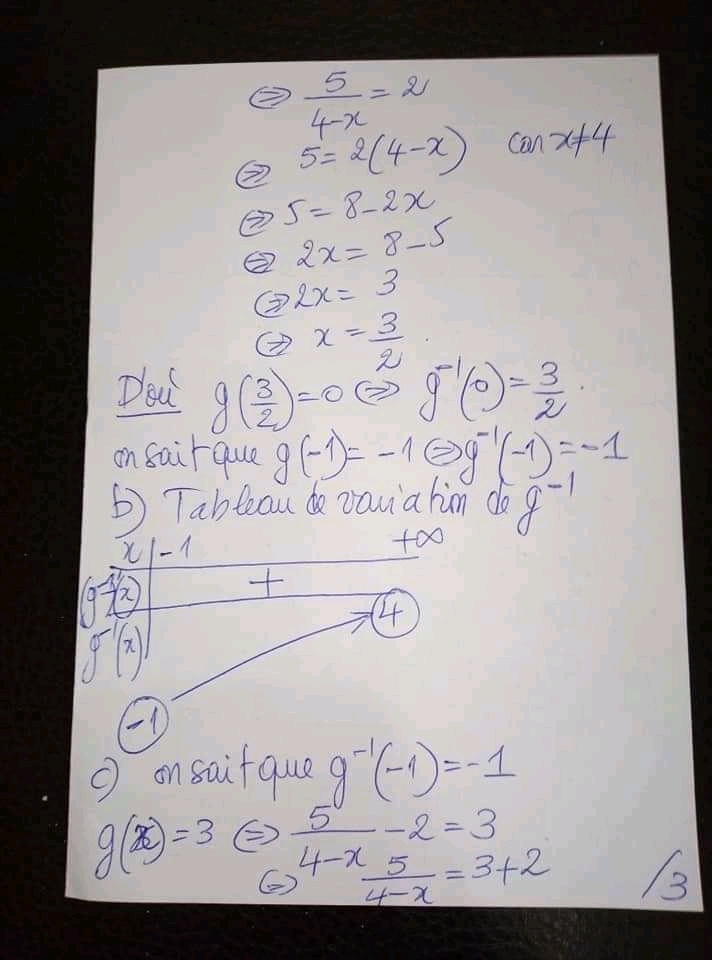 ⇔ 5/(4-x) = 2
⇔ 5 = 2(4-x) car x≠4
⇔ 5 = 8-2x
⇔ 2x = 8-5
⇔ 2x = 3
⇔ x = 3/2.
D'où g(3/2)=0 ⇔ g⁻¹(0)=3/2.
on sait que g(-1)=-1 ⇔ g⁻¹(-1)=-1
b) Tableau de variation de g⁻¹
x | -1 +∞
(g⁻¹)'(x) +
g⁻¹(x) 4
-1
c) on sait que g⁻¹(-1)=-1
g(x)=3 ⇔ 5/(4-x) -2 = 3
⇔ 5/(4-x) = 3+2
/3